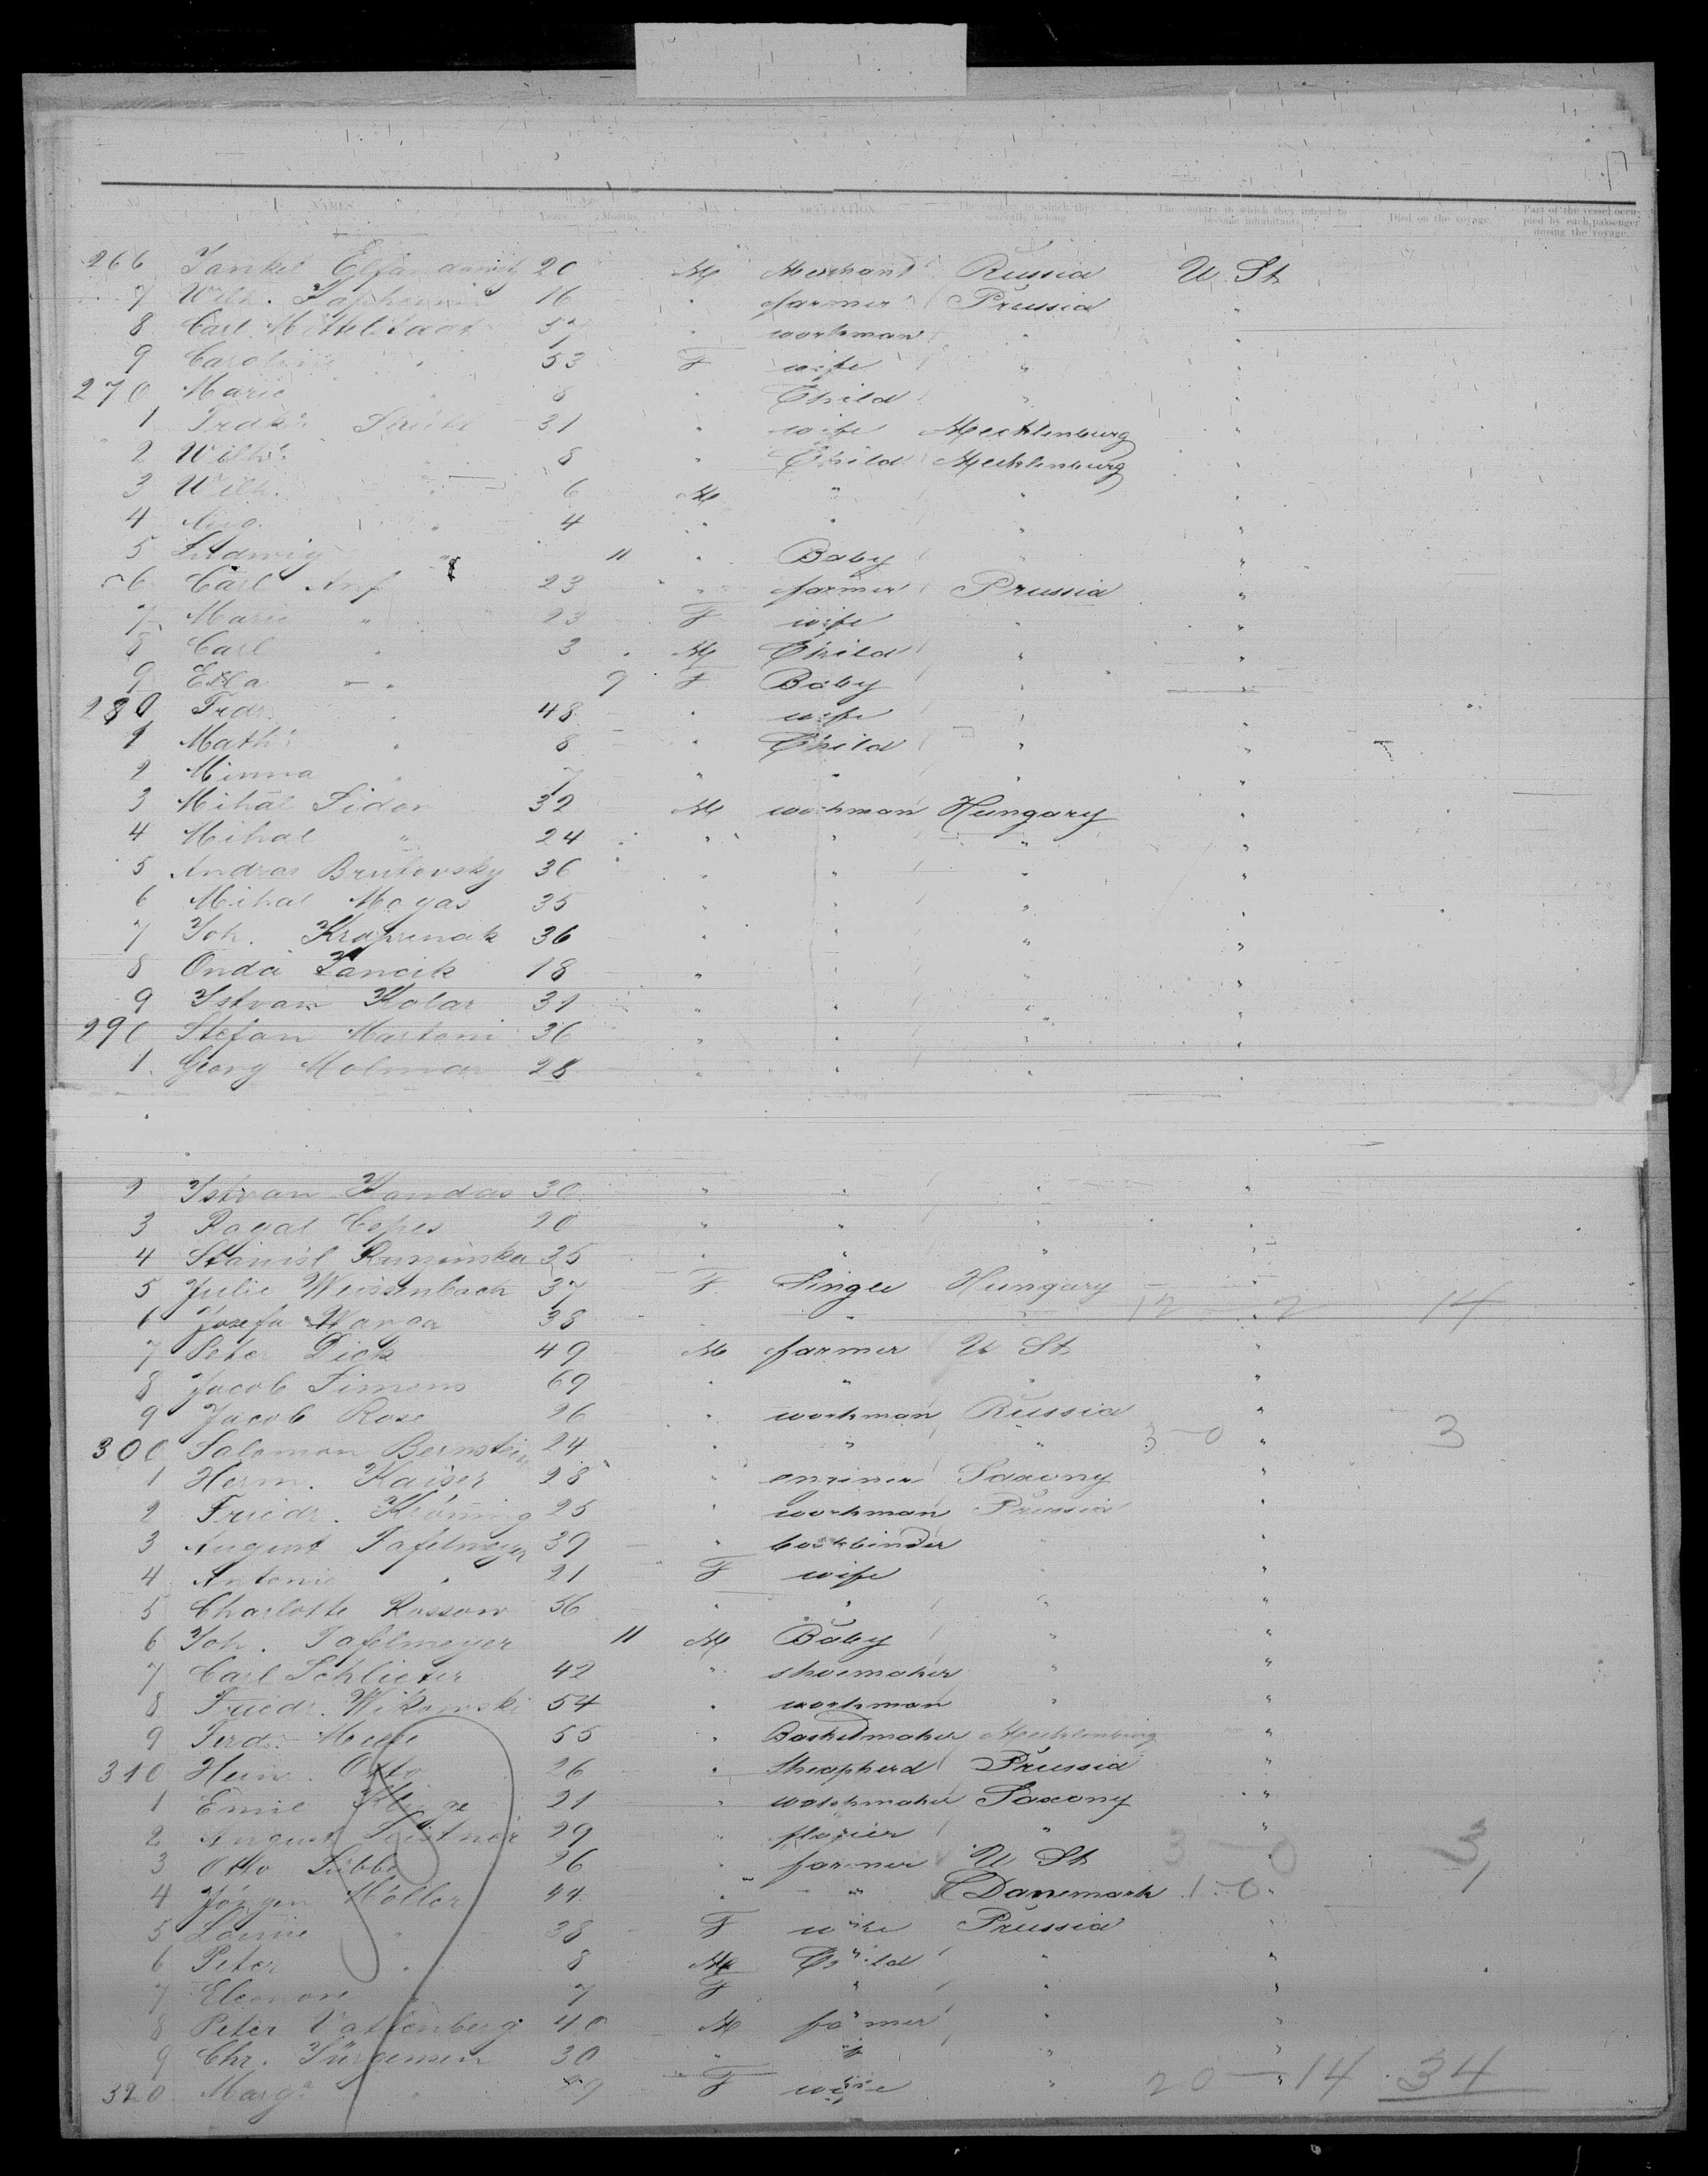 No. NAMES. Age. Years. Months. SEX. OCCUPATION. The country to which they severally belong. The country in which they intend to become inhabitants. Died on the voyage. Part of the vessel occupied by each passenger during the voyage.
266 Jankel 20 M Merchant Russia U. St.
7 Wilh. 16 " farmer Prussia "
8 Carl Mittelstaedt 57 " workman " "
9 Caroline " 53 F wife " "
270 Marie " 8 " Child " "
1 31 " wife Mecklenburg "
2 Wilhe " 8 " Child Mecklenburg "
3 Wilh. " 6 M " " "
4 Aug. " 4 " " " "
5 Ludwig " 11 " Baby " "
6 Carl 23 " farmer Prussia "
7 Marie " 23 F wife " "
8 Carl " 3 M Child " "
9 Ella " 9 F Baby " "
280 Frdr. " 48 " wife " "
1 Mathe " 8 " Child " "
2 Minna " 7 " " " "
3 Mihal Sidor 32 M workman Hungary "
4 Mihal " 24 " " " "
5 Andras Brutovsky 36 " " " "
6 Mihal Magas 35 " " " "
7 Joh. Kraprinak 36 " " " "
8 Onda Lancik 18 " " " "
9 Istvan Kolar 31 " " " "
290 Stefan Martoni 36 " " " "
1 Georg Molnar 28 " " " "
2 Istvan Kandas 30 " " " "
3 20 " " " "
4 Stanisl Ruszinska 35 " " " "
5 Julie Weissenbach 37 F Singer Hungary "
6 Josefa Warga 38 " " " 12 " 2 14
7 Peter Dick 49 M farmer U St "
8 Jacob Simens 69 " " " "
9 Jacob Rose 26 " workman Russia "
300 Salomon Bernstein 24 " " " 3-0 " 3
1 Herm. Kaiser 28 " enginer Saxony "
2 Friedr. Kröning 25 " workman Prussia "
3 August Tafelmeyer 39 " bookbinder " "
4 Antonie " 21 F wife " "
5 Charlotte Rossow 56 " " " "
6 Joh. Tafelmeyer 11 M Baby " "
7 Carl Schlieter 42 " shoemaker " "
8 Friedr. Wikowski 54 " workman " "
9 Ferd. 55 " Basketmaker Mecklenburg "
310 Hein. Otto 26 " Sheapherd Prussia "
1 Emil 21 " watchmaker Saxony "
2 August Leistner 29 " " "
3 Otto Lübbe 26 " farmer U St 3-0 " 3
4 Jörgen Möller 44 " " Danemark 1-0 " 1
5 " 38 F wife Prussia "
6 Peter " 8 M Child " "
7 Eleonore " 7 F " " "
8 Peter Vattenberg 40 M farmer " "
9 Chr. Jürgensen 30 " " " "
320 Marga " 29 F wife " 20-14 34